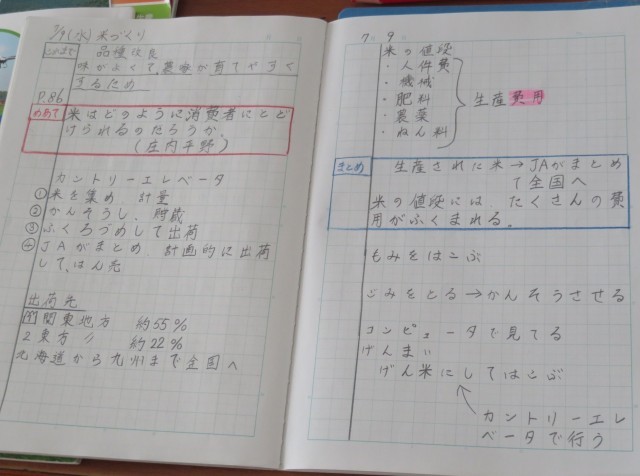 7/9(水) 米づくり
品種改良
味がよくて、農家が育てやすく
するため
P.86
めあて 米はどのように消費者にとど
けられるのだろうか。
(庄内平野)
カントリーエレベータ
①米を集め、計量
②かんそうし、貯蔵
③ふくろづめして出荷
④JAがまとめ、計画的に出荷
して、はん売
出荷先
関東地方 約55%
東方〃 約22%
北海道から九州まで全国へ
7 9
米の値段
・人件費
・機械
・肥料
・農薬
・ねん料
生産費用
まとめ 生産された米→JAがまとめ
て全国へ
米の値段には、たくさんの費
用がふくまれる。
もみをはこぶ
ごみをとる→かんそうさせる
コンピュータで見てる
げんまい
げん米にしてはこぶ
カントリーエレ
ベータで行う